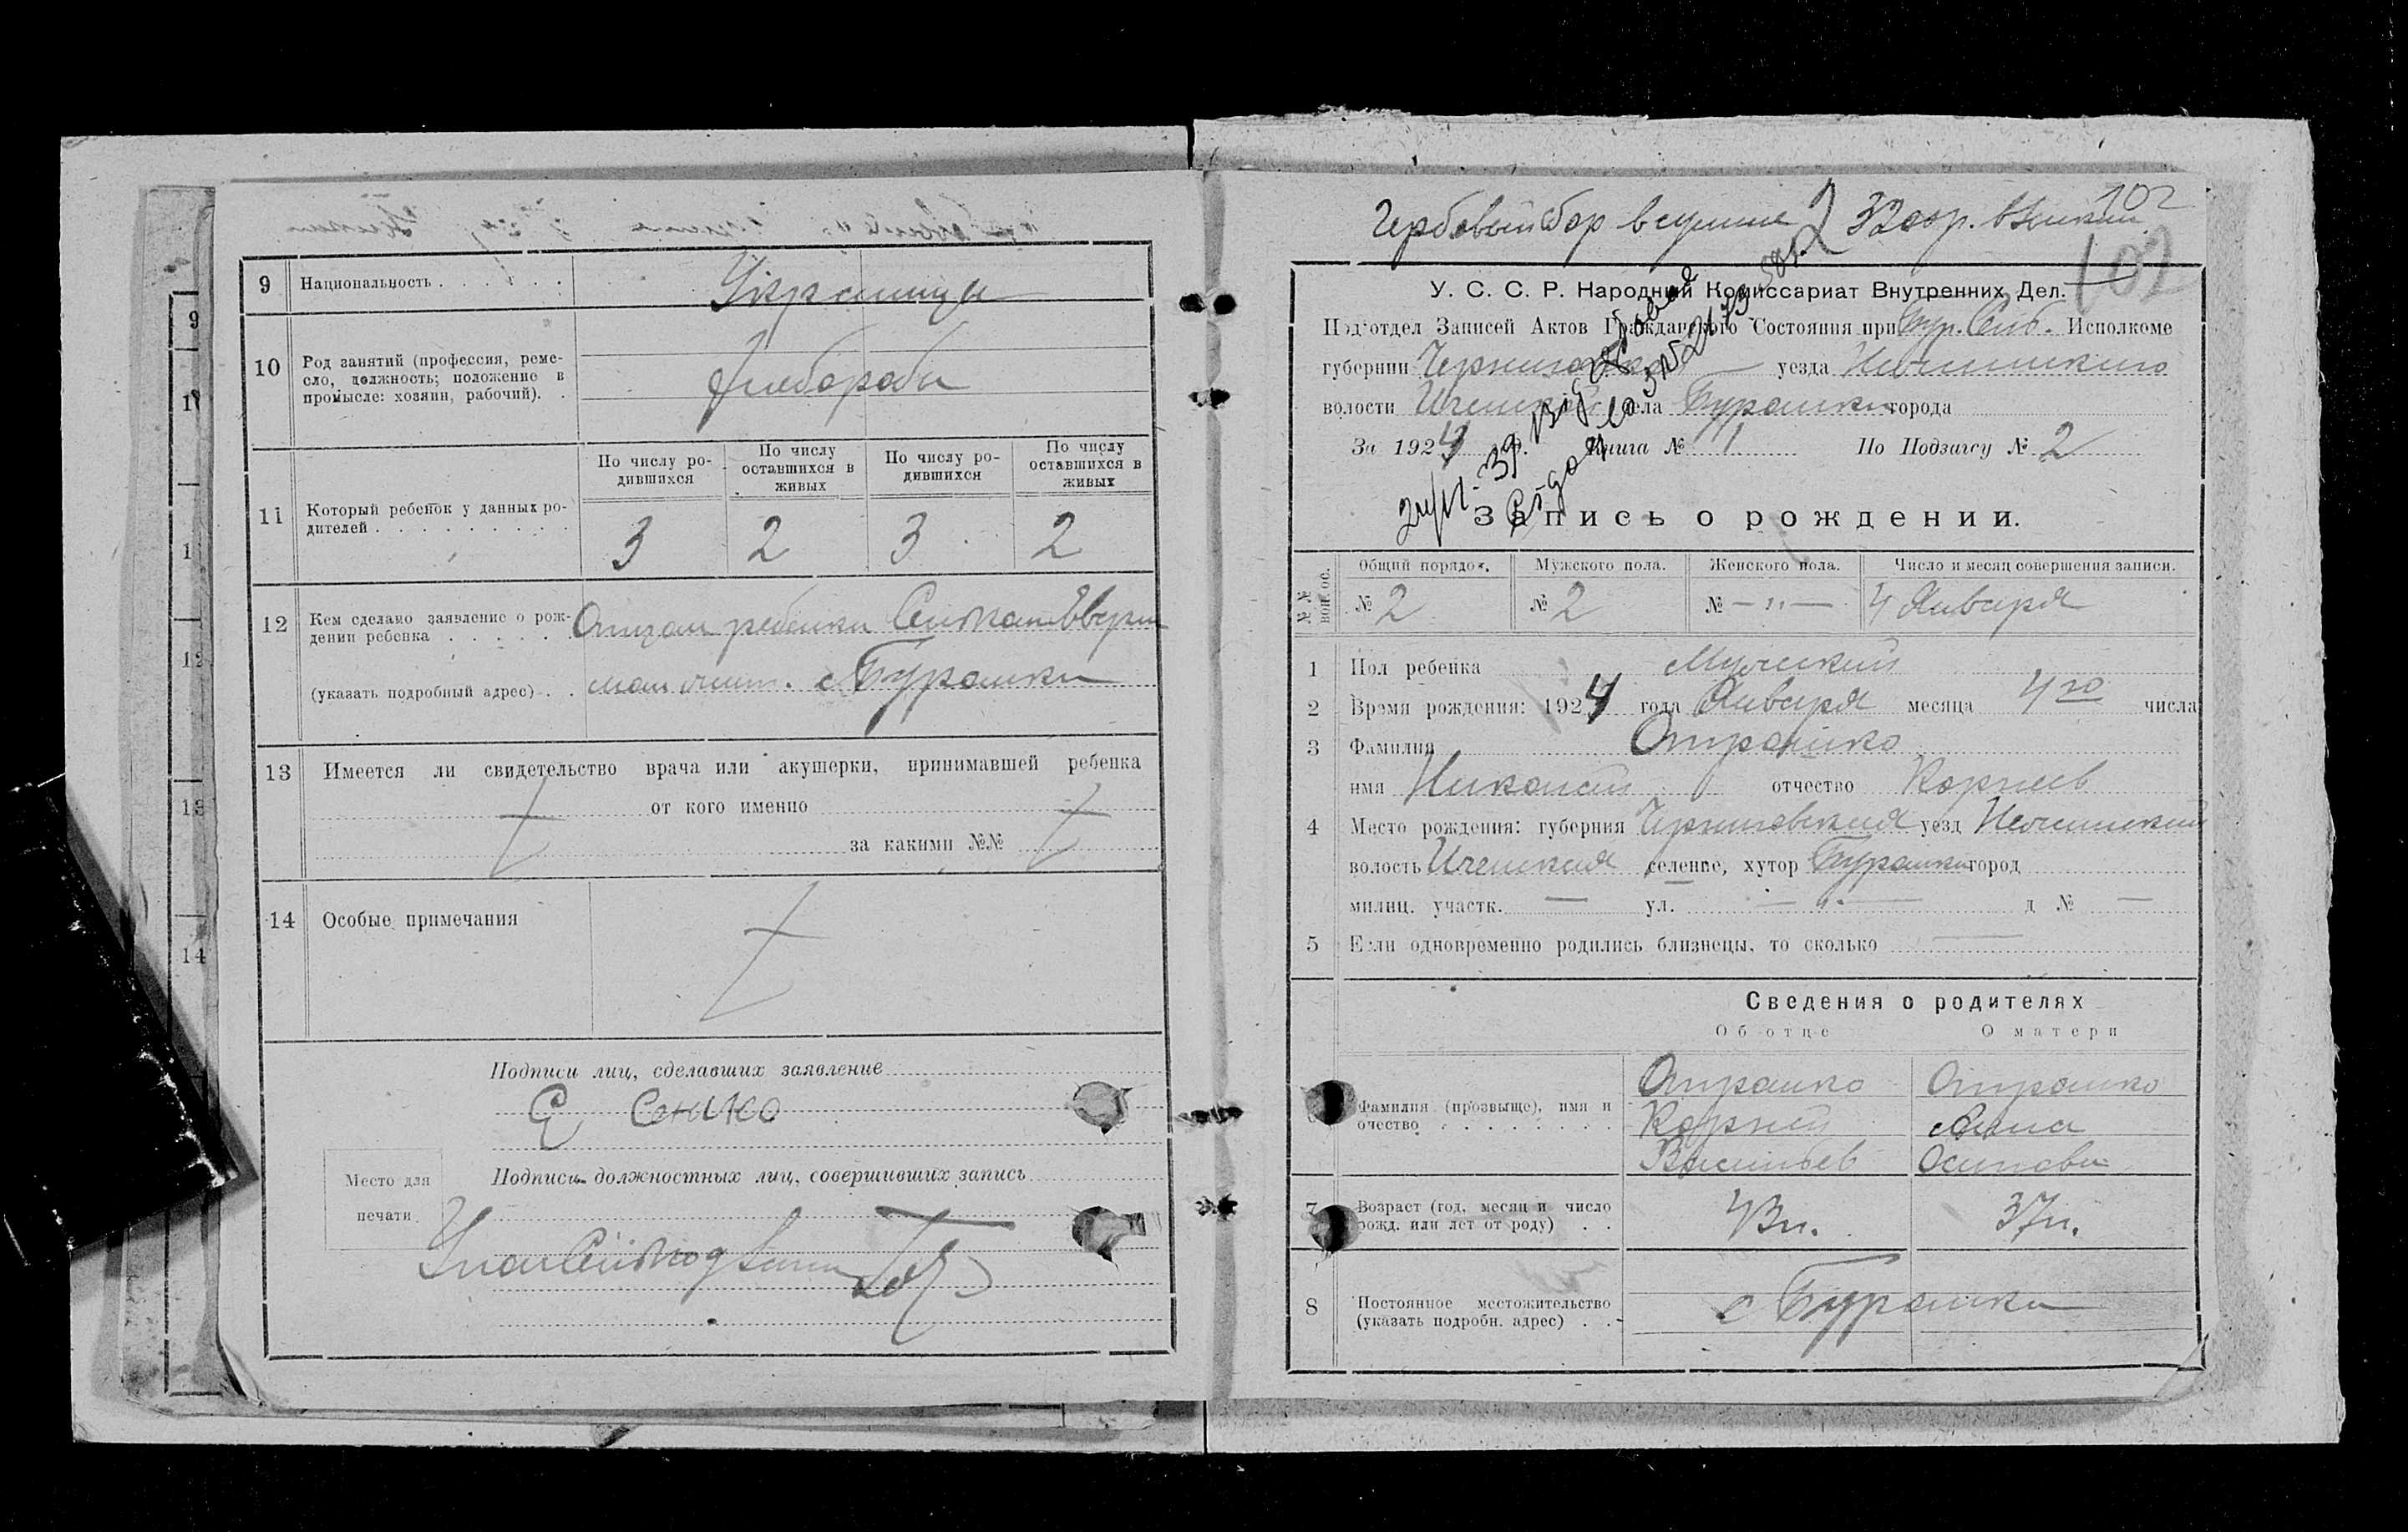 9 Национальность . . . . . . Украинцы
10 Род занятий (профессия, реме-
сло, должность; положение в
промысле: хозяин, рабочий). .
Хлеборобы
11 Который ребенок у данных ро-
дителей . . . . . . . . .
По числу ро-
дившихся
По числу
оставшихся в
живых
По числу ро-
дившихся
По числу
оставшихся в
живых
3 2 3 2
12 Кем сделано заявление о рож-
дении ребенка . . . . . Отцом ребенка Сенько
(указать подробный адрес) . . с Бурамки
13 Имеется ли свидетельство врача или акушерки, принимавшей ребенка
от кого именно
за какими №№
14 Особые примечания
Подписи лиц, сделавших заявление
Е Сенько
Подписи должностных лиц, совершивших запись
Место для
печати
9
10
1
12
13
14
Гербовый сбор в сумме 2 р. взыскан
102
102
У. С. С. Р. Народний Комиссариат Внутренних Дел.
Под'отдел Записей Актов Гражданского Состояния при Исполкоме
губернии Черниговской уезда Нежинского
волости Иченской села Бурамки города
За 1924 г. Книга № 1 По Подзагсу № 2
Запись о рождении.
№ №
вопрос.
Общий порядок. Мужского пола. Женского пола. Число и месяц совершения записи.
№ 2 № 2 № — " — 4 Января
1 Пол ребенка Мужский
2 Время рождения: 1924 года Января месяца 4го числа
3 Фамилия Отрошко
имя Николай отчество Корнеев
4 Место рождения: губерния Черниговская уезд Нежинский
волость Иченская селение, хутор Бурамки город
милиц. участк. — ул. — " — д № —
5 Если одновременно родились близнецы, то сколько —
Сведения о родителях
Об отце О матери
Фамилия (прозвыще), имя и
очество . . . . . . . .
Отрошко Отрошко
Корней Анна
Васильев Осипова
7 Возраст (год, месяц и число
рожд. или лет от роду) . .
43 л. 37 л.
8 Постоянное местожительство
(указать подробн. адрес) . .
с Бурамки